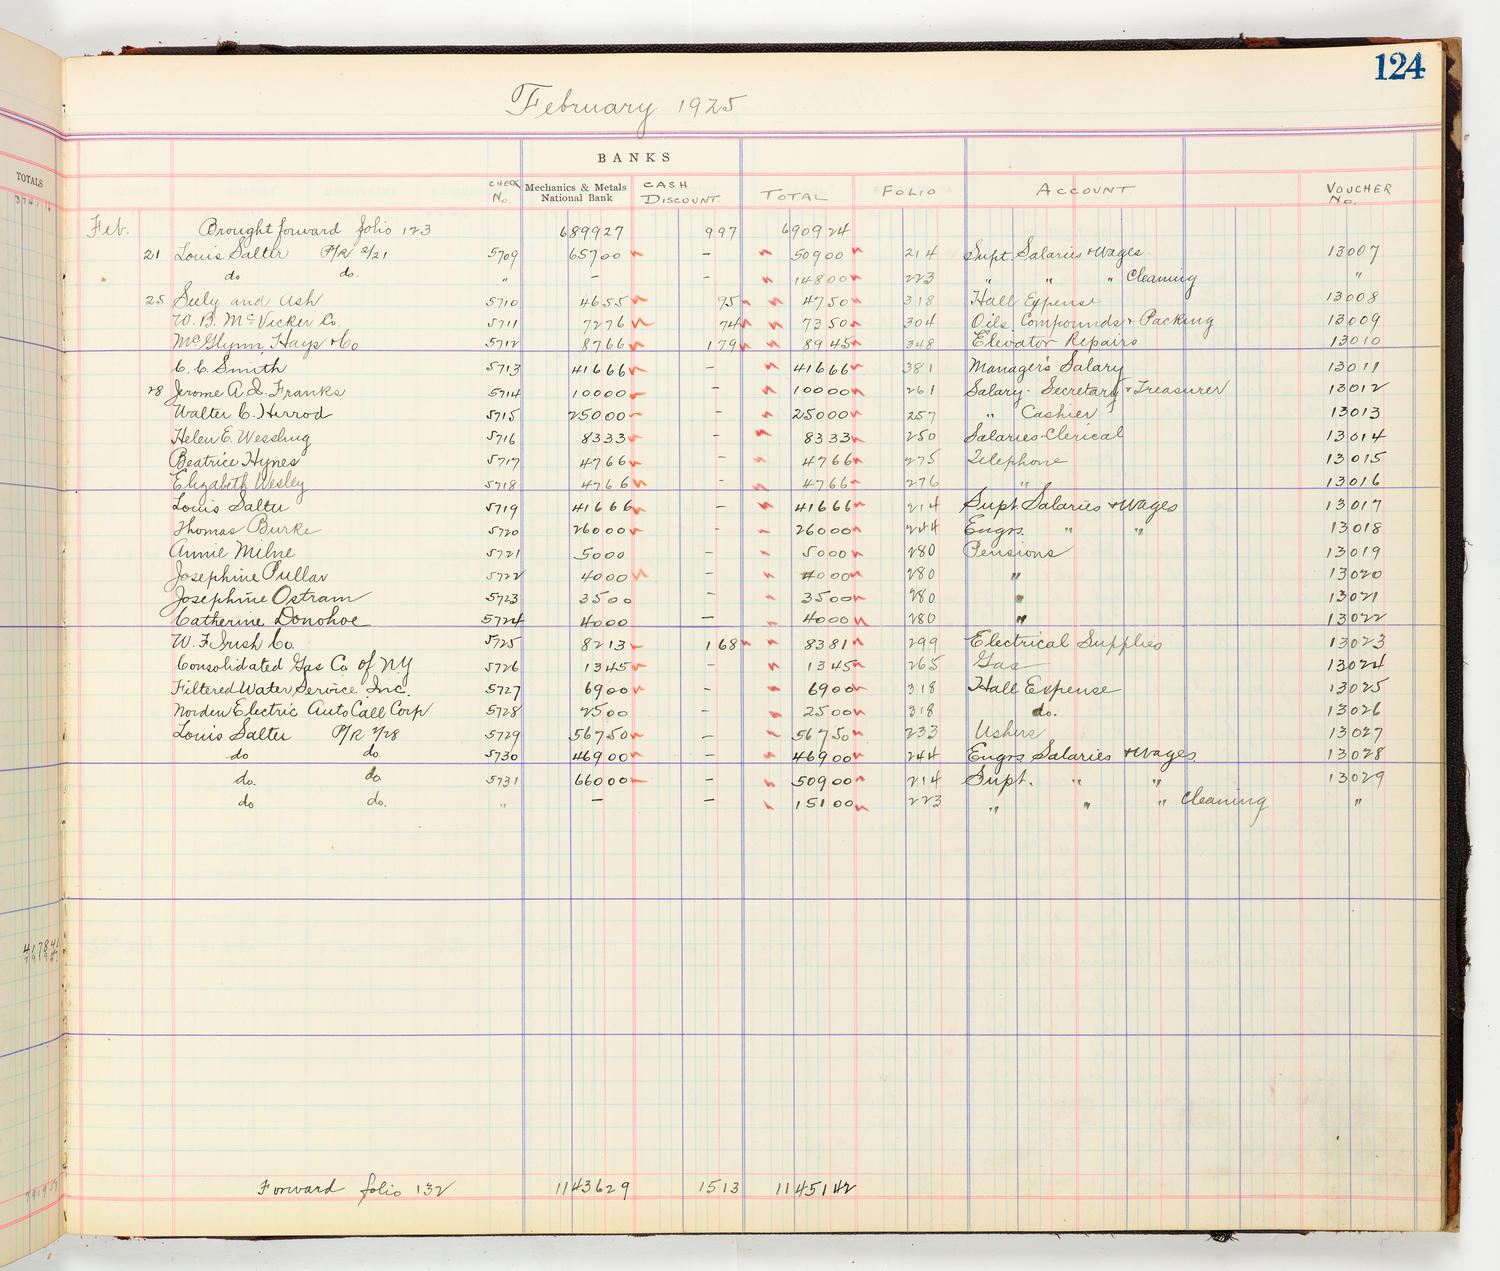 124
February 1925
BANKS
TOTALS
CHECK No. Mechanics & Metals National Bank CASH DISCOUNT TOTAL FOLIO ACCOUNT VOUCHER No.
Feb. Brought forward folio 123 689927 997 690924
21 Louis Salter P/R 2/21 5709 65700 - 50900 214 Supt. Salaries & Wages 13007
do do. " - 14800 223 " " " Cleaning "
25 Seely and Ash 5710 4655 95 4750 318 Hall Expense 13008
W. B. McVicker Co. 5711 7276 74 7350 304 Oils, Compounds & Packing 13009
McGlynn Hays & Co 5712 8766 179 8945 348 Elevator Repairs 13010
C. C. Smith 5713 41666 - 41666 381 Manager's Salary 13011
28 Jerome A. Q. Franks 5714 10000 - 10000 261 Salary. Secretary & Treasurer 13012
Walter C. Herrod 5715 25000 - 25000 257 " Cashier 13013
Helen E. Wessling 5716 8333 - 8333 250 Salaries-Clerical 13014
Beatrice Hynes 5717 4766 - 4766 275 Telephone 13015
Elizabeth Wesley 5718 4766 - 4766 276 " 13016
Louis Salter 5719 41666 - 41666 214 Supt Salaries & Wages 13017
Thomas Burke 5720 26000 - 26000 244 Engrs. " " 13018
Annie Milne 5721 5000 - 5000 280 Pensions 13019
Josephine Pullar 5722 4000 - 4000 280 " 13020
Josephine Ostram 5723 3500 - 3500 280 " 13021
Catherine Donohoe 5724 4000 - 4000 280 " 13022
W. F. Irish Co. 5725 8213 168 8381 299 Electrical Supplies 13023
Consolidated Gas Co of NY 5726 1345 - 1345 265 Gas 13024
Filtered Water Service Inc. 5727 6900 - 6900 318 Hall Expense 13025
Norden Electric Auto Call Corp 5728 2500 - 2500 318 do. 13026
Louis Salter P/R 2/28 5729 56750 - 56750 233 Ushers 13027
do do. 5730 46900 - 46900 244 Engrs Salaries & Wages 13028
do. do. 5731 66000 - 50900 214 Supt. " " 13029
do do. " - - 15100 223 " " " Cleaning "
Forward folio 132 1143629 1513 1145142